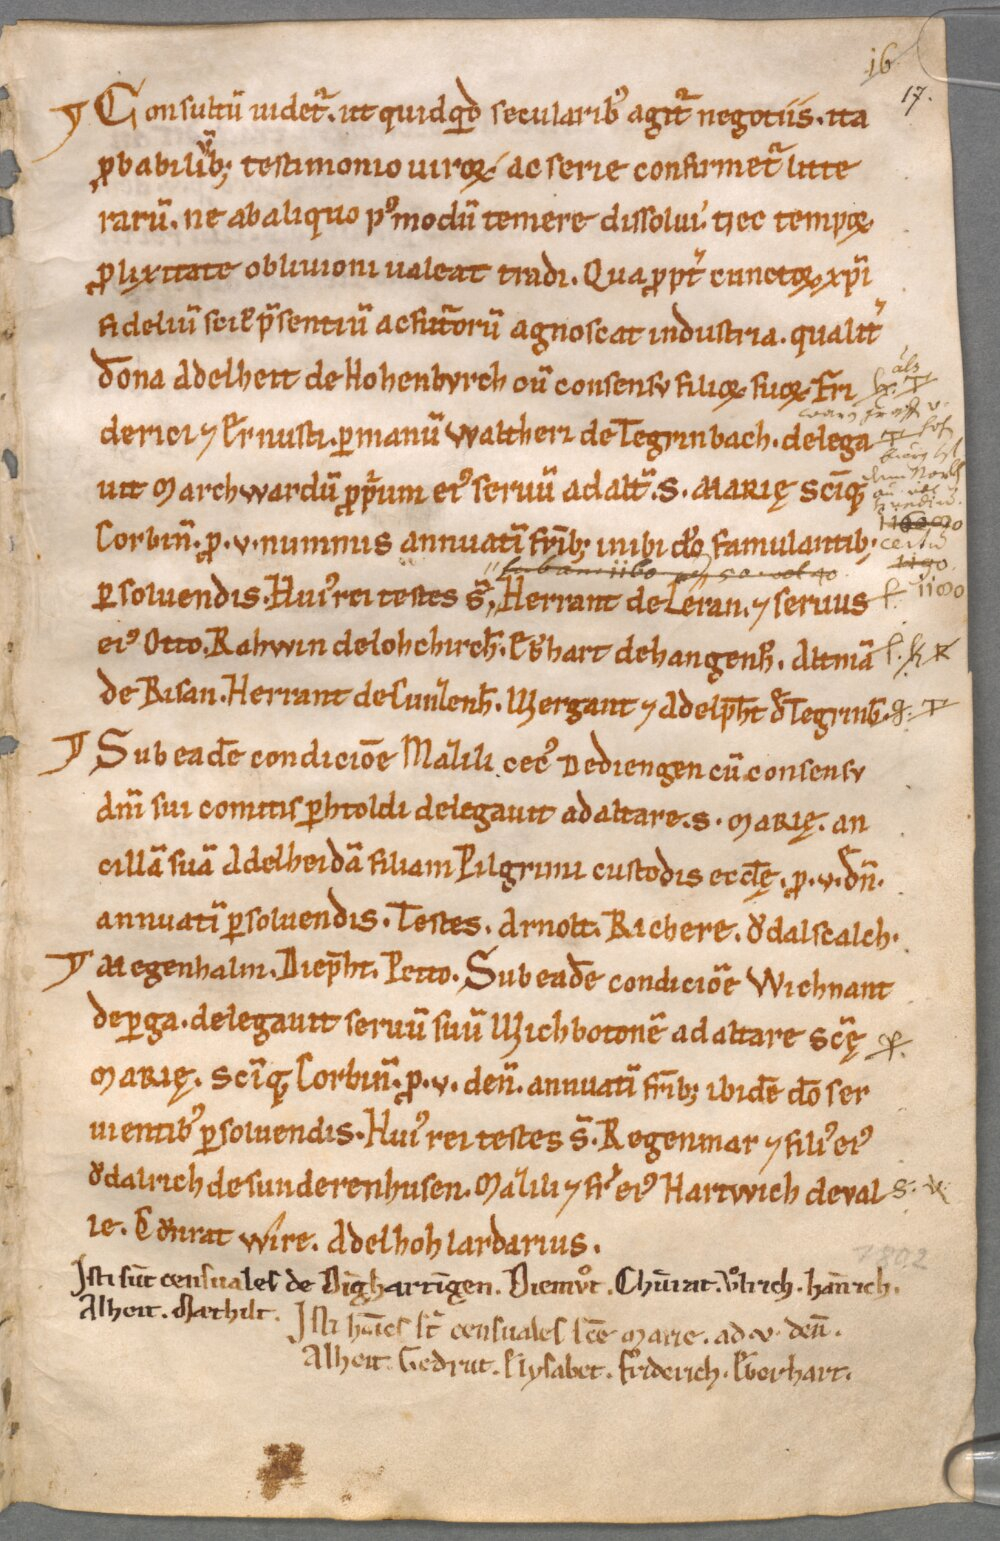 16
17.
Consultũ uidet᷑. ut quidqͥd secularibꝰ agit᷑ negotiis. ita
ꝓbabiliũ testimonio uiroꝝ ac serie confirmet᷑ litte
rarũ. ne ab aliquo pꝰmodũ temere dissolui. nec tempoꝝ
ꝓlixitate obliuioni ualeat tradi. Quapropt᷑ cunctoꝝ xp̃i
fideliũ scil. p̃sentiũ ac futuroꝝũ agnoscat industria. qualit᷑
dõna Adelheit de Hohenbvrch cũ consensv filioꝝ suoꝝ Fri
derici ⁊ Ernusti. ꝑ manũ Waltheri de Tegrinbach. delega
uit Marchwardũ ꝓprium eiꝰ seruũ ad alt᷑. S. MARIĘ Sc̃iqꝫ
Corbiñ. ꝓ. v. nummis annuatĩ fr̃ibꝫ inibi dõ famulantibꝫ
ꝑsoluendis. Huiꝰ rei testes s̃. Herrant de Leran. ⁊ seruus
eiꝰ Otto. Rahwin de lohchirch̃. Eb̃hart de hangenh̃. Altmã
de Risan. Herrant de Cunlenh̃. Wergant ⁊ Adelp̃ht de Tegrinb̃.
Sub eadẽ condiciõe Mælili cecꝰ Dediengen cũ consensv
dñi sui comitis ꝑhtoldi delegauit ad altare. S. MARIĘ. an
cillã suã Adelheidã filiam Pilgrimi custodis eccl̃ę. ꝓ. v. deñ.
annuatĩ ꝑsoluendis. Testes. Arnolt. Richere. Vͦdalscalch.
Megenhalm. Diep̃ht. Petto. Sub eadẽ condiciõe Wichnant
de ꝑga. delegauit seruũ suũ Wichbotonẽ ad altare sc̃ę
MARIĘ. Sc̃iqꝫ Corbiñ. ꝓ. v. deñ. annuatĩ fr̃ibꝫ ibidẽ dõ ser
uientibꝰ ꝑsoluendis. Huiꝰ rei testes s̃. Regenmar ⁊ filiꝰ eiꝰ
Vͦdalrich de sunderenhusen. Mælili ⁊ fr̃ eiꝰ Hartwich de val
ie. Cͮnrat wire. Adelhoh lardarius.
Isti sũt censuales de Dĩghartĩgen. Diemvͦt. Chũrat. Vͦlrich. hãinrich.
Alheit. Mæthilt.
Isti hõies st᷑ censuales sc̃e Marie. ad. v. deñ.
Alheit. Gedrut. Elysabet. Friderich. Eberhart.
7802